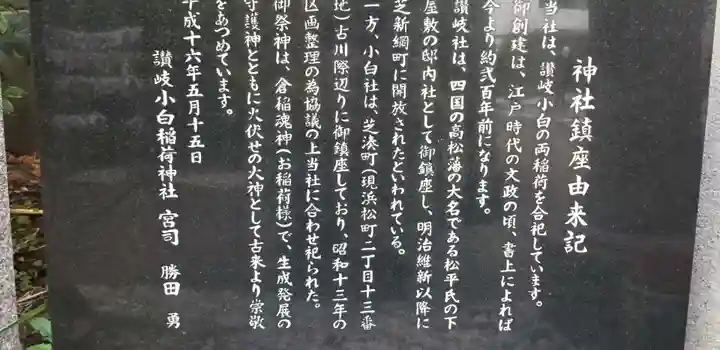 神社鎮座由来記
当社は、讃岐小白の両稲荷を合祀しています。
御創建は、江戸時代の文政の頃、書上によれば
今より約弐百年前になります。
讃岐社は、四国の高松藩の大名である松平氏の下
屋敷の邸内社として御鎮座し、明治維新以降に
芝新網町に開放されたといわれている。
一方、小白社は、芝湊町(現浜松町二丁目十三番
地)古川際辺りに御鎮座しており、昭和十三年の
区画整理の為協議の上当社に合わせ祀られた。
御祭神は、倉稲魂神(お稲荷様)で、生成発展の
守護神とともに火伏せの火神として古来より崇敬
をあつめています。
平成十六年五月十五日
讃岐小白稲荷神社 宮司 勝田 勇